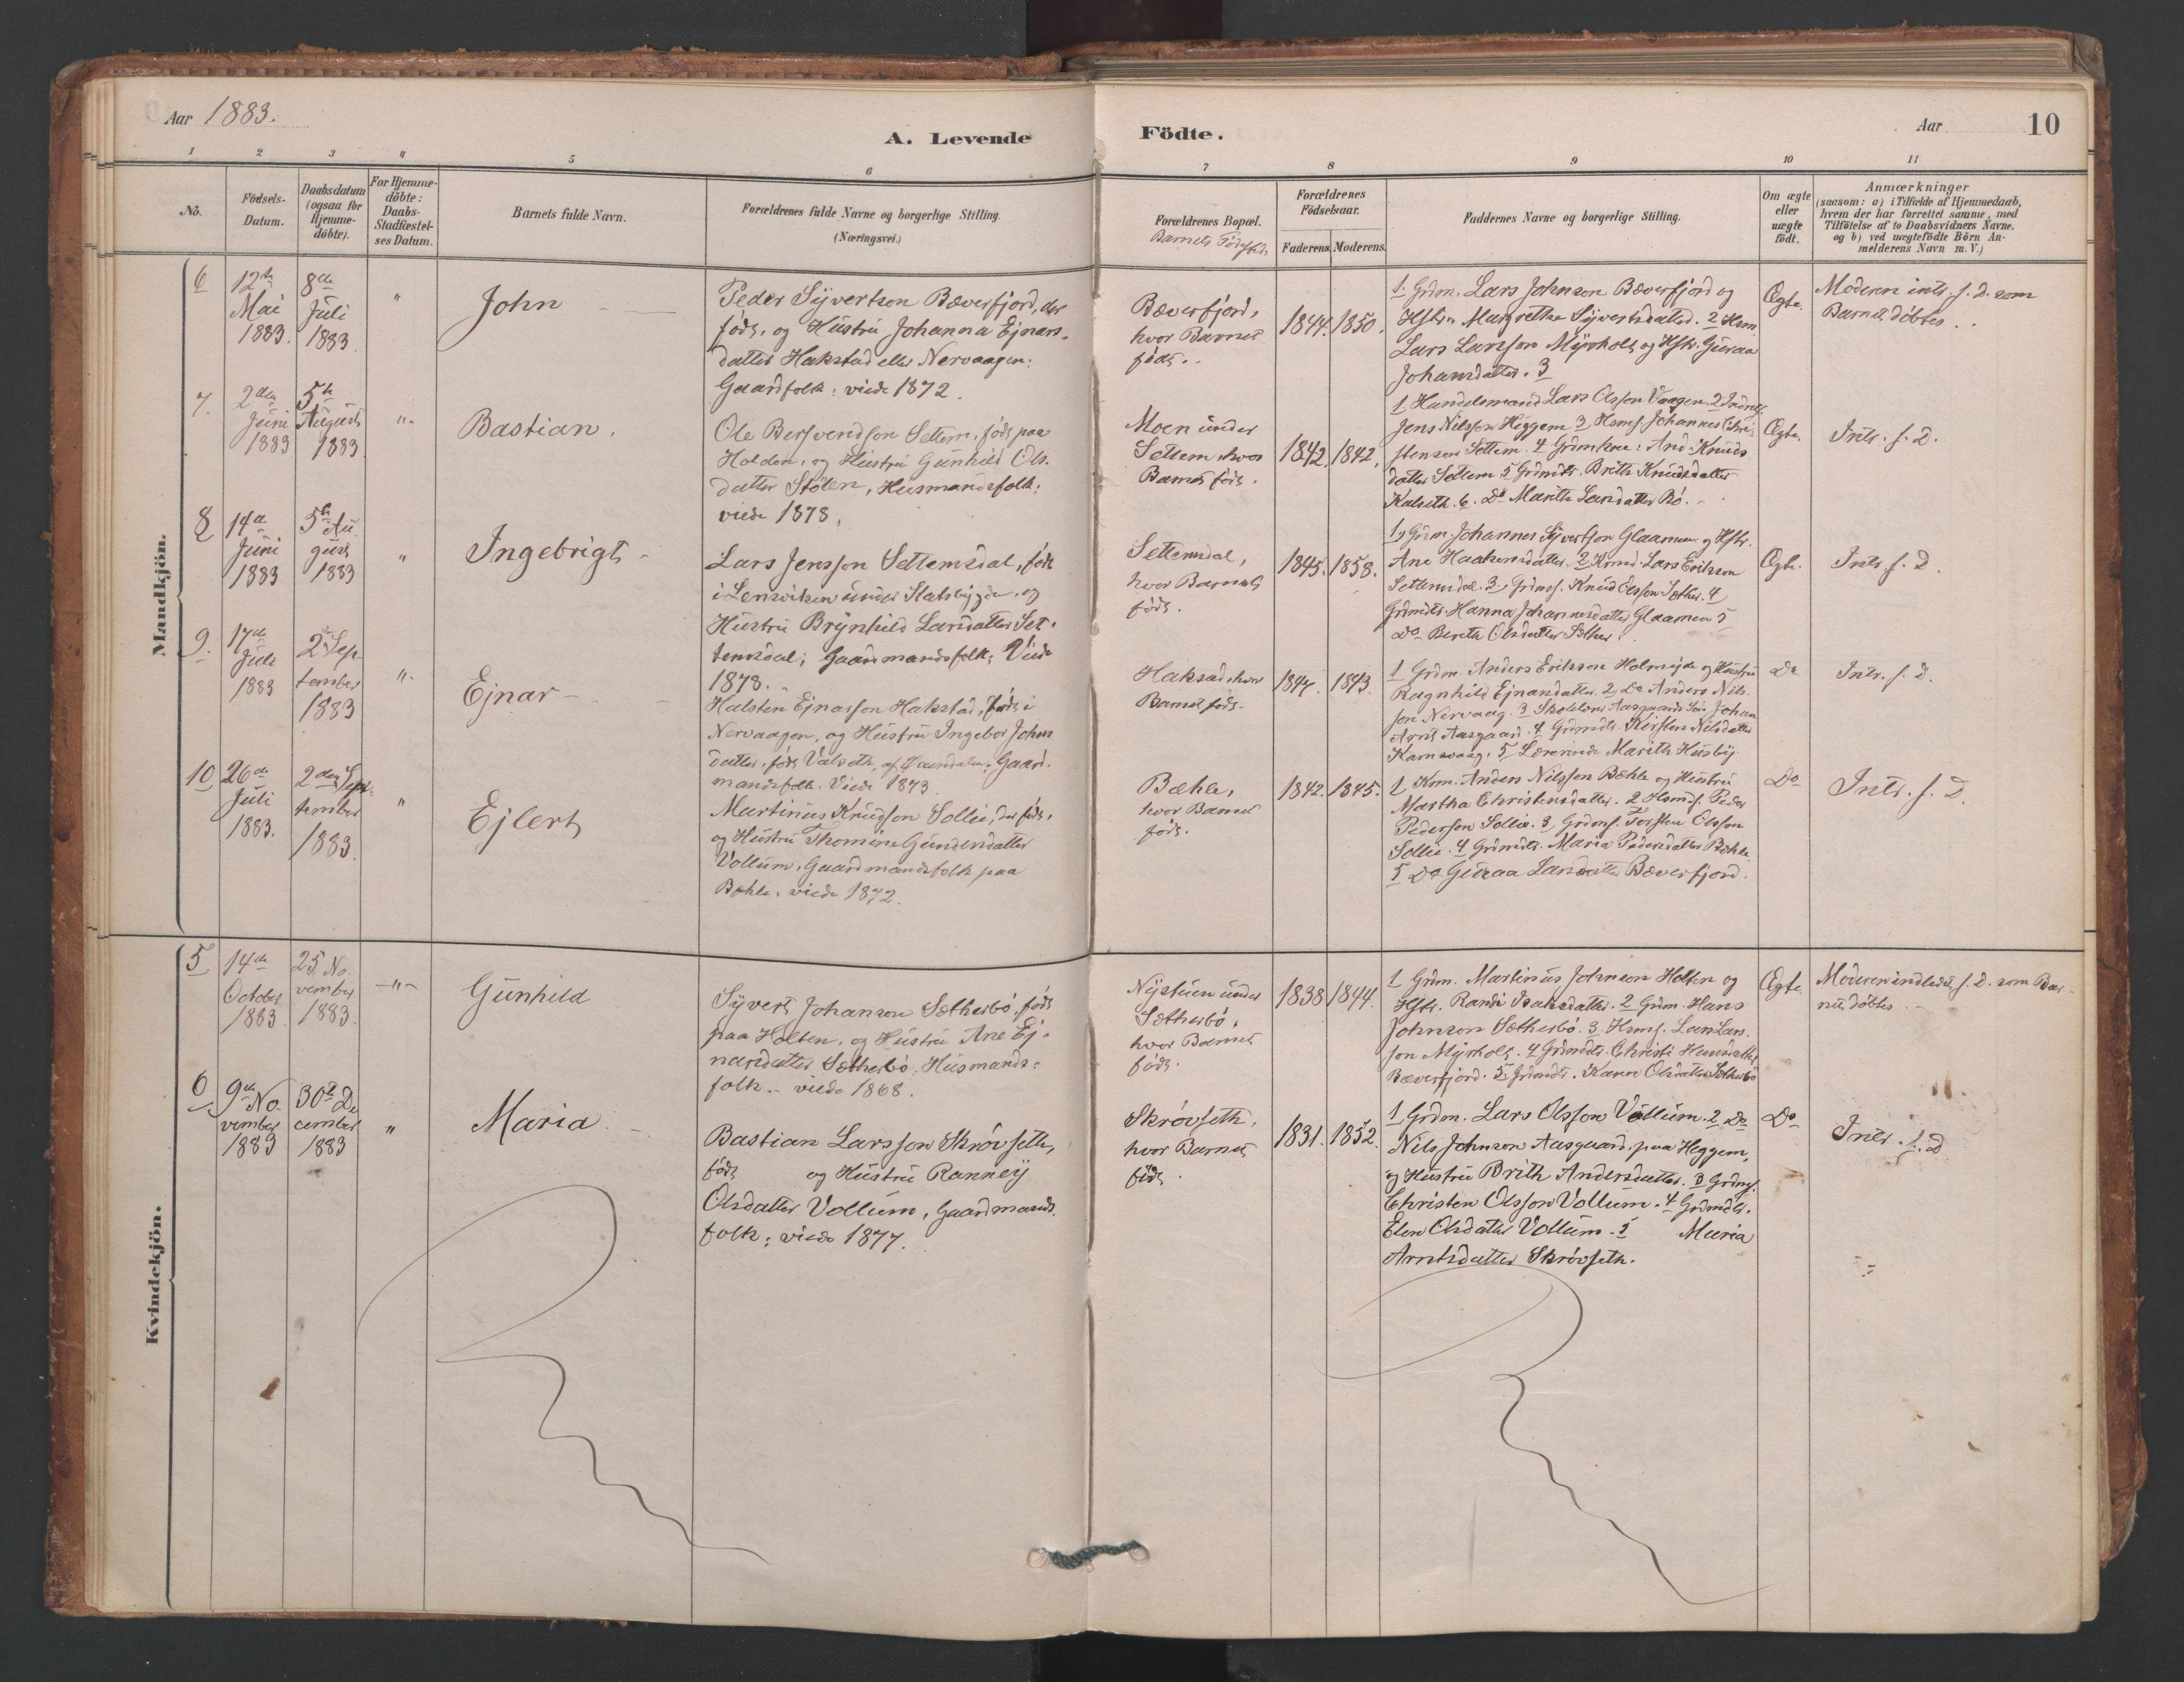 Aar 1883.
A. Levende
Födte.
Aar
10
1 2 3 4 5 6 7 8 9 10 11
No.
Födsels-
Datum.
Daabsdatum
(ogsaa for
Hjemme-
döbte).
For Hjemme-
döbte:
Daabs-
Stadfæstel-
ses Datum.
Barnets fulde Navn.
Forældrenes fulde Navne og borgerlige Stilling.
(Næringsvei.)
Forældrenes Bopæl.
Barnets Fødested.
Forældrenes
Födselsaar.
Faderens. Moderens.
Faddernes Navne og borgerlige Stilling.
Om ægte
eller
uægte
födt.
Anmærkninger
(saasom: a) i Tilfælde af Hjemmedaab,
hvem der har forrettet samme, med
Tilföielse af to Daabsvidners Navne.
og b) ved uægtefödte Börn An-
melderens Navn m. V.)
Mandkjön.
6
12te
Mai
1883.
8de
Juli
1883
"
John
Peder Syvertson Bæverfjord, der
født, og Hustru Johanna Ejnars-
datter Hakstad eller Nervaagen:
Gaardfolk: viede 1872.
Bæverfjord,
hvor Barnet
født.
1844. 1850.
1. Grdm. Lars Johnson Bæverfjord og
Hstr. Margrethe Syvertsdatter. 2 Hsm.
Lars Larsson Myrholt og Hstr. Guraa
Johansdatter. 3
Ægte.
Moderen intr. s. D. som
Barnet døbtes.
7.
2den
Juni
1883
5te
August
1883
"
Bastian.
Ole Bersvendson Settem, født paa
Holden, og Hustru Gunhild Ols-
datter Stølen, Husmandsfolk:
viede 1878.
Moen under
Settem, hvor
Barnet født.
1842. 1842.
1 Handelsmand Lars Olsson Vaagen. 2
Jens Nilsson Heggem 3 Hsmf. Johannes Chri-
stensen Settem. 4 Ane Knuds-
datter Settem 5 Grdmdtr. Brith Knudsdatter
Kalseth. 6. Do Marith Larsdatter Bø.
Ægte.
Intr. s. D.
8
14de
Juni
1883
5te Au-
gust
1883
"
Ingebrigt
Lars Jensson Settemsdal, født
i Lensviken under Statsbygden, og
Hustru Brynhild Larsdatter Set-
temsdal; Gaardmandsfolk: Viede
1878.
Settemsdal,
hvor Barnet
født.
1845. 1858.
1, Grdm. Johannes Syvertson Glaamen og Hstr.
Ane Haakensdatter. 2 Lars Erikson
Settemsdal. 3, Grdmf. Knud Olsson Sæther. 4
Grdmdtr. Hanna Johannesdatter Glaamen 5
Do Berith Olsdatter Sæther.
Ægte.
Intr. s. D.
9.
17de
Juli
1883
2den Sep-
tember
1883
"
Ejnar
Halsten Ejnarson Hakstad, født i
Nervaagen, og Hustru Ingebor Johns-
datter, født Valseth, af Surendalen: Gaard-
mandsfolk. Viede 1873.
Hakstad, hvor
Barnet født.
1847. 1843.
1 Grdm. Anders Erikson Holmeide og Hustru
Ragnhild Ejnarsdatter. 2 Do Anders Nils-
son Nervaag. 3 Aasgaards Søn Johan
Arnt Aasgaard. 4. Grdmdtr. Kirsten Nilsdatter
Karnvaag. 5 Lærerinde Marith Husby.
Do
Intr. s. D.
10
26de
Juli
1883.
2den Sept-
tember
1883.
"
Ejlert
Martinus Knudson Sollie, der født,
og Hustru Thomine Gundersdatter
Vollum, Gaardmandsfolk paa
Bæhle. viede 1872.
Bæhle,
hvor Barnet
født.
1842. 1845.
1 Krm. Anders Nilsson Bæhle og Hustru
Martha Christensdatter. 2 Hsmdf. Peder
Pederson Sollie. 3, Grdmf. Torsten Olsson
Sollie. 4 Grdmdtr. Maria Pedersdatter Bæhle.
5 Do Guraa Larsdatter Bæverfjord.
Do
Intr. s. D.
Kvindekjön.
5
14de
October
1883
25. No-
vember
1883.
"
Gunhild
Syvert Johanson Sætherbø, født
paa Holten, og Hustru Ane Ej-
narsdatter Sætherbø, Husmands-
folk. viede 1868.
Nystuen under
Sætherbø,
hvor Barnet
født.
1838 1844.
1 Grdm. Martinus Johnson Holten og
Hstr. Randi Isaksdatter. 2 Grdm. Hans
Johnson Sætherbø. 3. Hsmf. Lars Lars-
son Myrholt. 4 Grdmdtr. Christi
Bæverfjord. 5 Grdmdtr. Karen Olsdatter Sætherbø
Ægte.
Moderen indledet s. D. som Bar-
net døbtes.
6
9de No-
vember
1883
30te De-
cember
1883
"
Maria
Bastian Larsson Skrøvseth,
født og Hustru Ranney
Olsdatter Vollum, Gaardmands-
folk: viede 1877.
Skrøvseth,
hvor Barnet
født.
1831. 1852.
1 Grdm. Lars Olsson Vollum. 2 Do
Nils Johnson Aasgaard paa Heggem,
og Hustru Brith Andersdatter. 3 Grdmf.
Christen Olsson Vollum. 4 Grdmdtr.
Elen Olsdatter Vollum. 5 Maria
Arntsdatter Skrøvseth.
Do
Intr. s. D